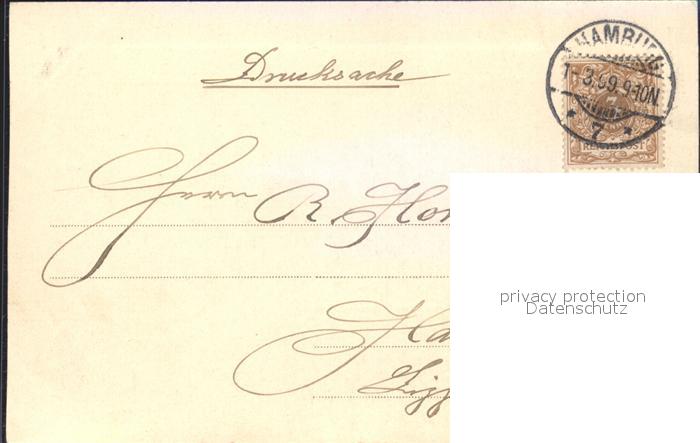 Drucksache
HAMBURG
1-3.99.9-10N.
* 7 *
REICHSPOST
Herrn R. Hor
Ha
privacy protection
Datenschutz